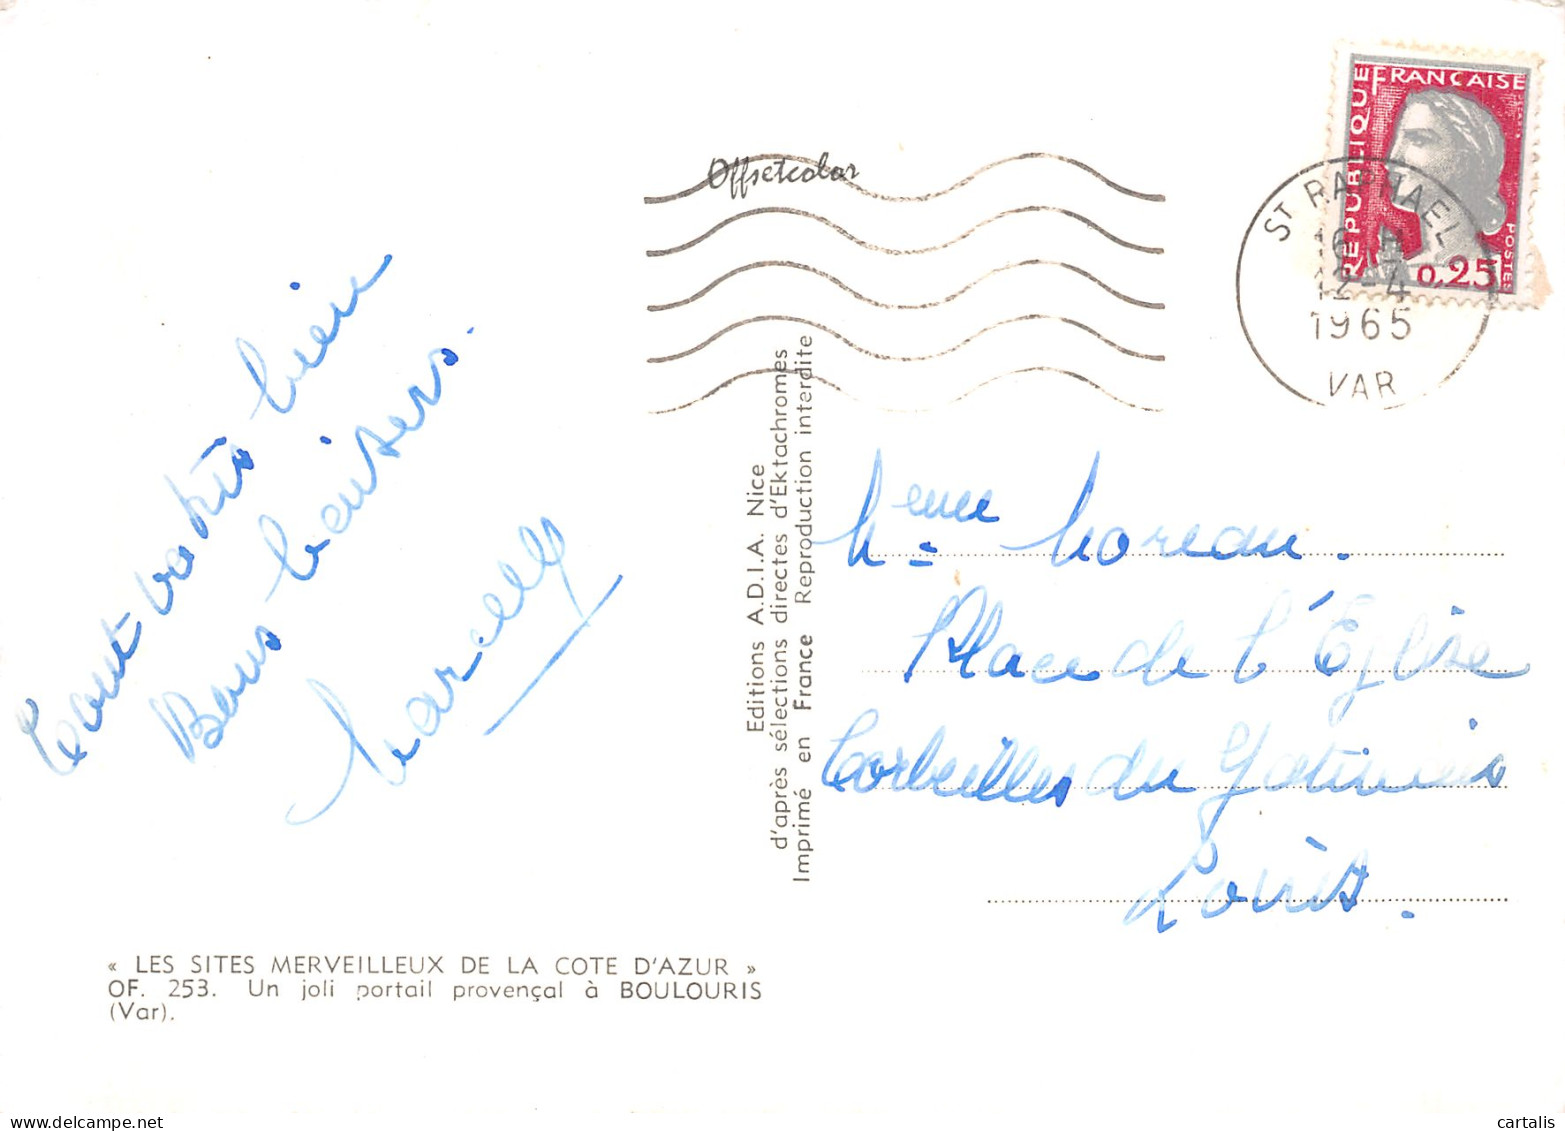 Offsetcolor
REPUBLIQUE FRANCAISE
POSTES
0,25
ST RAPHAEL
16 H
12-4
1965
VAR
tout va très bien
Bons baisers.
Marcelle
Editions A.D.I.A. Nice
d'après sélections directes d'Ektachromes
Imprimé en France Reproduction interdite
Mme Moreau.
Place de l'Eglise
Corbeilles du Gatinais
Loiret.
« LES SITES MERVEILLEUX DE LA COTE D'AZUR »
OF. 253. Un joli portail provençal à BOULOURIS
(Var).
https://www.delcampe.net
cartalis